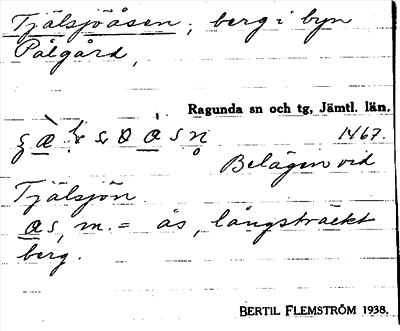 Tjälsjöåsen; berg i byn
Pålgård,
Ragunda sn och tg, Jämtl. län.
1467.
Belägen vid
Tjälsjön.
ås, m. = ås, långsträckt
berg.
BERTIL FLEMSTRÖM 1938.